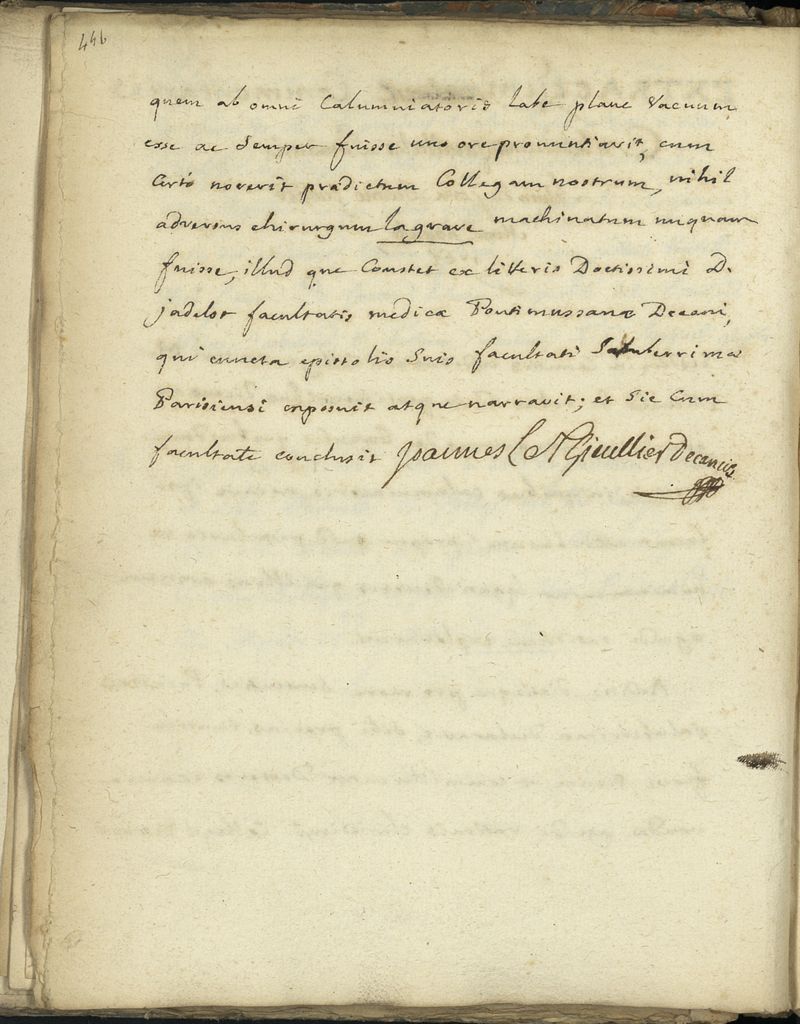 446
quem ab omni Calumniatoris labe plane Vacuum
esse ac Semper fuisse uno ore pronuntiavit, cum
Certò noverit prædictum Collegam nostrum, nihil
adversus chirurgum lagrave machinatum nuquam
fuisse, illud que Constet ex litteris Doctissimi D.
jadelot facultatis medicæ Pontimussanæ Decani,
qui cuncta epistolis Suis facultati Saluberrimæ
Parisiensi exposuit atque narravit; et Sic Cum
facultate conclusit Joannes Decanus